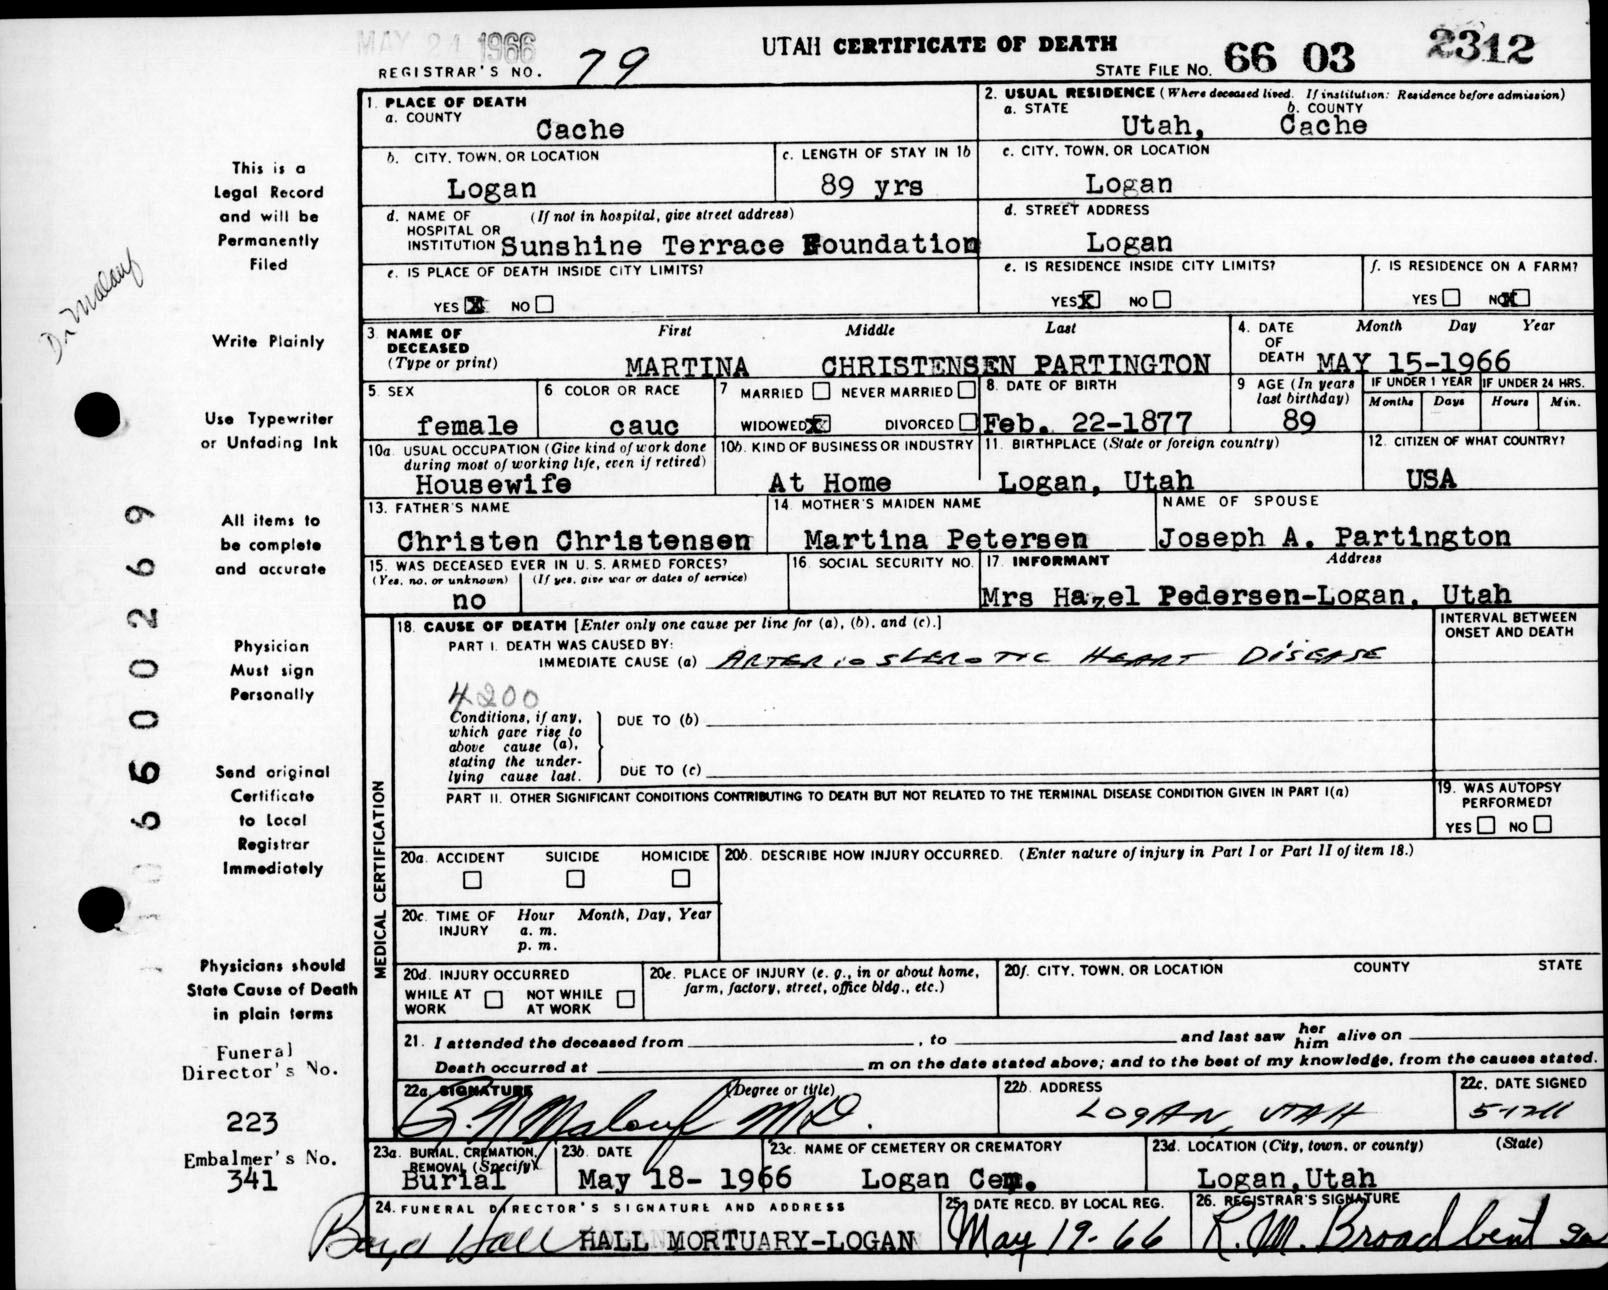 MAY 24 1966
REGISTRAR'S NO. 79
UTAH CERTIFICATE OF DEATH
STATE FILE NO. 66 03 2312
This is a
Legal Record
and will be
Permanently
Filed
Dr. Malouf
Write Plainly
Use Typewriter
or Unfading Ink
All items to
be complete
and accurate
Physician
Must sign
Personally
Send original
Certificate
to Local
Registrar
Immediately
Physicians should
State Cause of Death
in plain terms
Funeral
Director's No.
223
Embalmer's No.
341
6600269
1. PLACE OF DEATH
a. COUNTY
Cache
2. USUAL RESIDENCE (Where deceased lived. If institution: Residence before admission)
a. STATE b. COUNTY
Utah, Cache
b. CITY, TOWN, OR LOCATION
Logan
c. LENGTH OF STAY IN 1b
89 yrs
c. CITY, TOWN, OR LOCATION
Logan
d. NAME OF (If not in hospital, give street address)
HOSPITAL OR
INSTITUTION Sunshine Terrace Foundation
d. STREET ADDRESS
Logan
e. IS PLACE OF DEATH INSIDE CITY LIMITS?
YES X NO
e. IS RESIDENCE INSIDE CITY LIMITS?
YES X NO
f. IS RESIDENCE ON A FARM?
YES NO X
3 NAME OF
DECEASED
(Type or print)
First Middle Last
MARTINA CHRISTENSEN PARTINGTON
4. DATE
OF
DEATH
Month Day Year
MAY 15-1966
5. SEX
female
6 COLOR OR RACE
cauc
7 MARRIED NEVER MARRIED
WIDOWED X DIVORCED
8. DATE OF BIRTH
Feb. 22-1877
9 AGE (In years
last birthday)
89
IF UNDER 1 YEAR
Months Days
IF UNDER 24 HRS.
Hours Min.
10a. USUAL OCCUPATION (Give kind of work done
during most of working life, even if retired)
Housewife
10b. KIND OF BUSINESS OR INDUSTRY
At Home
11. BIRTHPLACE (State or foreign country)
Logan, Utah
12. CITIZEN OF WHAT COUNTRY?
USA
13. FATHER'S NAME
Christen Christensen
14. MOTHER'S MAIDEN NAME
Martina Petersen
NAME OF SPOUSE
Joseph A. Partington
15. WAS DECEASED EVER IN U. S. ARMED FORCES?
(Yes, no, or unknown) (If yes, give war or dates of service)
no
16. SOCIAL SECURITY NO.
17. INFORMANT Address
Mrs Hazel Pedersen-Logan, Utah
MEDICAL CERTIFICATION
18. CAUSE OF DEATH [Enter only one cause per line for (a), (b), and (c).]
INTERVAL BETWEEN
ONSET AND DEATH
PART I. DEATH WAS CAUSED BY:
IMMEDIATE CAUSE (a) ARTERIOSLEROTIC HEART DISEASE
4200
Conditions, if any,
which gave rise to
above cause (a),
stating the under-
lying cause last.
DUE TO (b)
DUE TO (c)
PART II. OTHER SIGNIFICANT CONDITIONS CONTRIBUTING TO DEATH BUT NOT RELATED TO THE TERMINAL DISEASE CONDITION GIVEN IN PART I(a)
19. WAS AUTOPSY
PERFORMED?
YES NO
20a. ACCIDENT SUICIDE HOMICIDE
20b. DESCRIBE HOW INJURY OCCURRED. (Enter nature of injury in Part I or Part II of item 18.)
20c. TIME OF Hour Month, Day, Year
INJURY a. m.
p. m.
20d. INJURY OCCURRED
WHILE AT NOT WHILE
WORK AT WORK
20e. PLACE OF INJURY (e. g., in or about home,
farm, factory, street, office bldg., etc.)
20f. CITY, TOWN, OR LOCATION COUNTY STATE
21. I attended the deceased from , to and last saw her him alive on
Death occurred at m on the date stated above; and to the best of my knowledge, from the causes stated.
22a. SIGNATURE (Degree or title)
Malouf M.D.
22b. ADDRESS
LOGAN, UTAH
22c. DATE SIGNED
23a. BURIAL, CREMATION,
REMOVAL (Specify)
Burial
23b. DATE
May 18- 1966
23c. NAME OF CEMETERY OR CREMATORY
Logan Cem.
23d. LOCATION (City, town, or county) (State)
Logan, Utah
24. FUNERAL DIRECTOR'S SIGNATURE AND ADDRESS
Boyd Hall HALL MORTUARY-LOGAN
25. DATE RECD. BY LOCAL REG.
May 19-66
26. REGISTRAR'S SIGNATURE
R. M. Broadbent